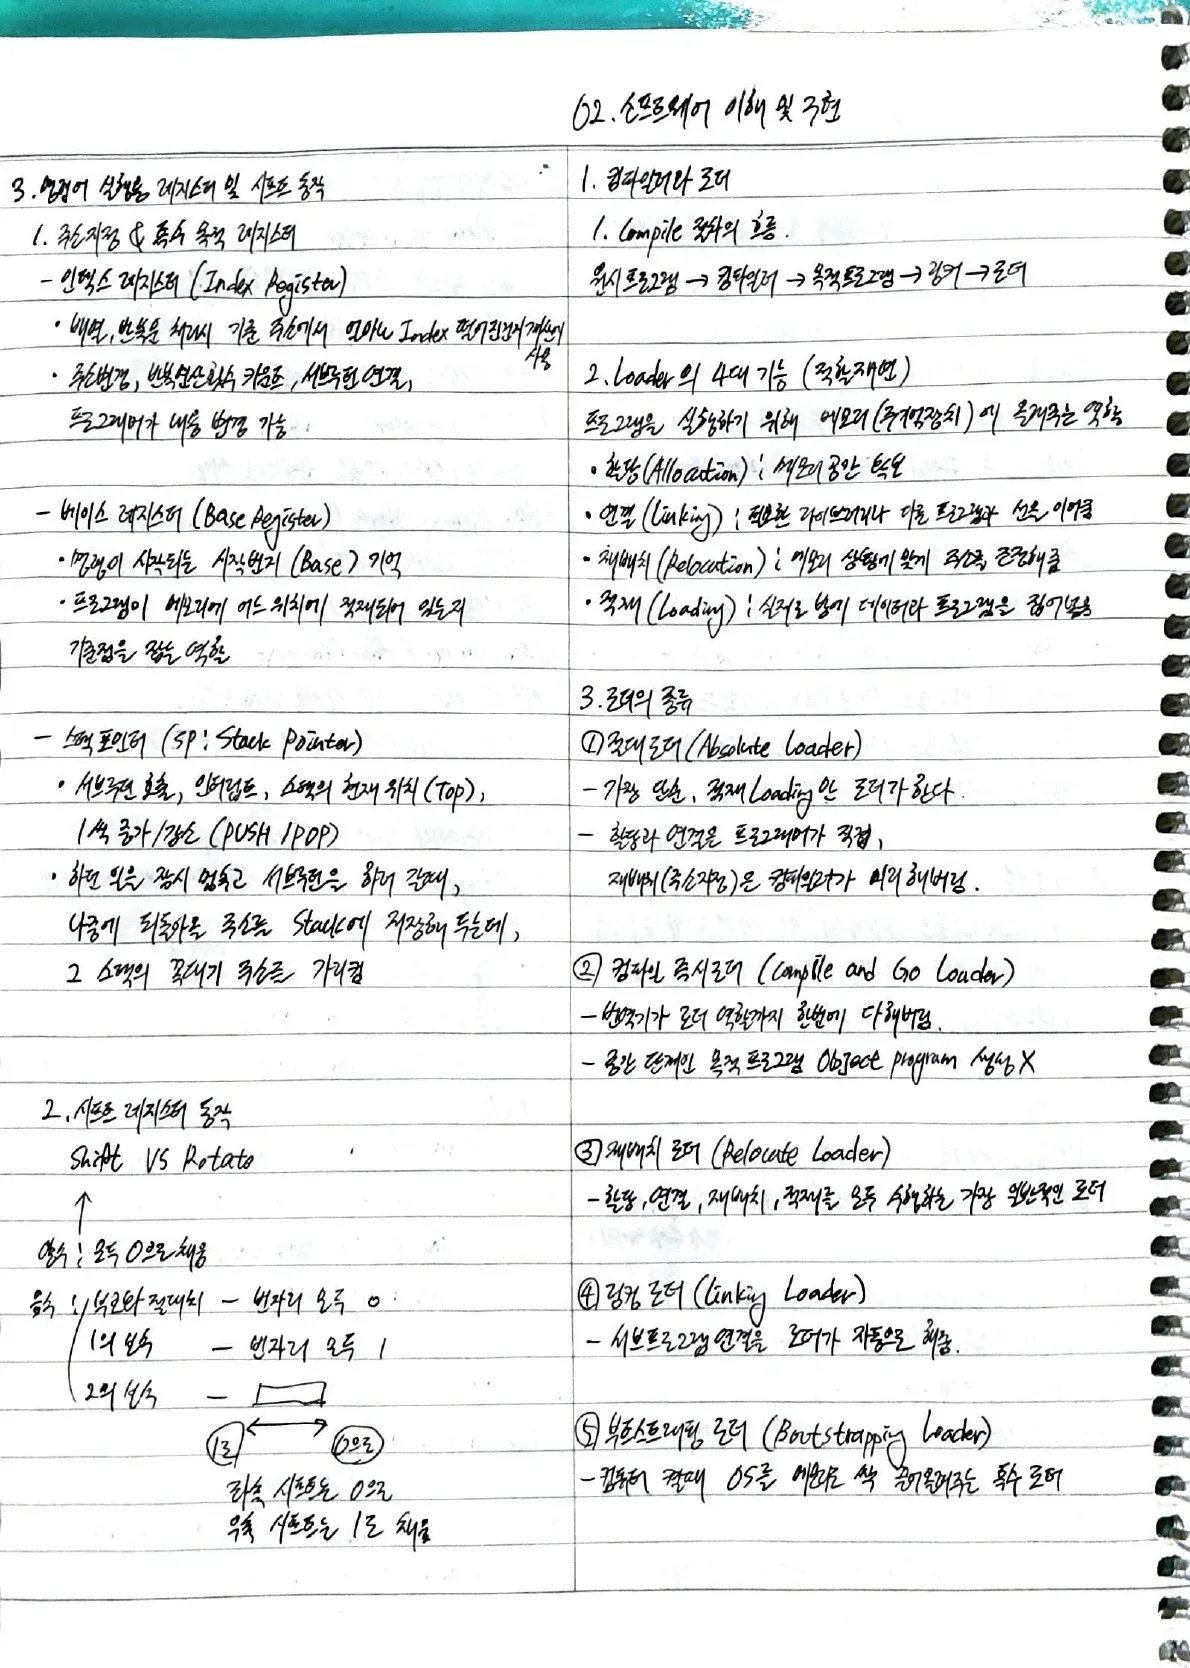 02. 소프트웨어 이해 및 구현
3. 명령어 실행용 레지스터 및 시프트 동작
1. 주소지정 & 특수 목적 레지스터
- 인덱스 레지스터 (Index Register)
• 배열, 반복문 처리시 기준 주소에서 얼마나 Index 떨어진건지 계산에
사용
• 주소변경, 반복연산횟수 카운트, 서브루틴 연결,
프로그래머가 내용 변경 가능
- 베이스 레지스터 (Base Register)
• 명령이 시작되는 시작번지 (Base) 기억
• 프로그램이 메모리에 어느 위치에 적재되어 있는지
기준점을 잡는 역할
- 스택 포인터 (SP : Stack Pointer)
• 서브루틴 호출, 인터럽트, 스택의 현재 위치 (Top),
1씩 증가/감소 (PUSH / POP)
• 하던 일을 잠시 멈추고 서브루틴을 하러 갈때,
나중에 되돌아올 주소를 Stack에 저장해 두는데,
그 스택의 꼭대기 주소를 가리킴
2. 시프트 레지스터 동작
Shift VS Rotate
↑
양수 : 모두 0으로 채움
음수 : 부호와 절대치 - 빈자리 모두 0
1의 보수 - 빈자리 모두 1
2의 보수 -
1로 0으로
좌측 시프트는 0으로
우측 시프트는 1로 채움
1. 컴파일러와 로더
1. Compile 절차의 흐름.
원시프로그램 → 컴파일러 → 목적프로그램 → 링커 → 로더
2. Loader의 4대 기능 (적할재연)
프로그램을 실행하기 위해 메모리 (주기억장치) 에 올려주는 역할
• 할당 (Allocation) : 메모리 공간 확보
• 연결 (Linking) : 필요한 라이브러리나 다른 프로그램과 선을 이어줌
• 재배치 (Relocation) : 메모리 상황에 맞게 주소를 조정해줌
• 적재 (Loading) : 실제로 방에 데이터와 프로그램을 집어넣음
3. 로더의 종류
① 절대로더 (Absolute Loader)
- 가장 단순, 적재Loading만 로더가 한다.
- 할당과 연결은 프로그래머가 직접,
재배치(주소지정)은 컴파일러가 미리 해버림.
② 컴파일 즉시로더 (Compile and Go Loader)
- 번역기가 로더 역할까지 한번에 다해버림.
- 중간 단계인 목적 프로그램 Object program 생성 X
③ 재배치 로더 (Relocate Loader)
- 할당, 연결, 재배치, 적재를 모두 수행하는 가장 일반적인 로더
④ 링킹 로더 (Linking Loader)
- 서브프로그램 연결을 로더가 자동으로 해줌.
⑤ 부트스트래핑 로더 (Bootstrapping Loader)
- 컴퓨터 켤때 OS를 메모리로 싹 끌어올려주는 특수 로더